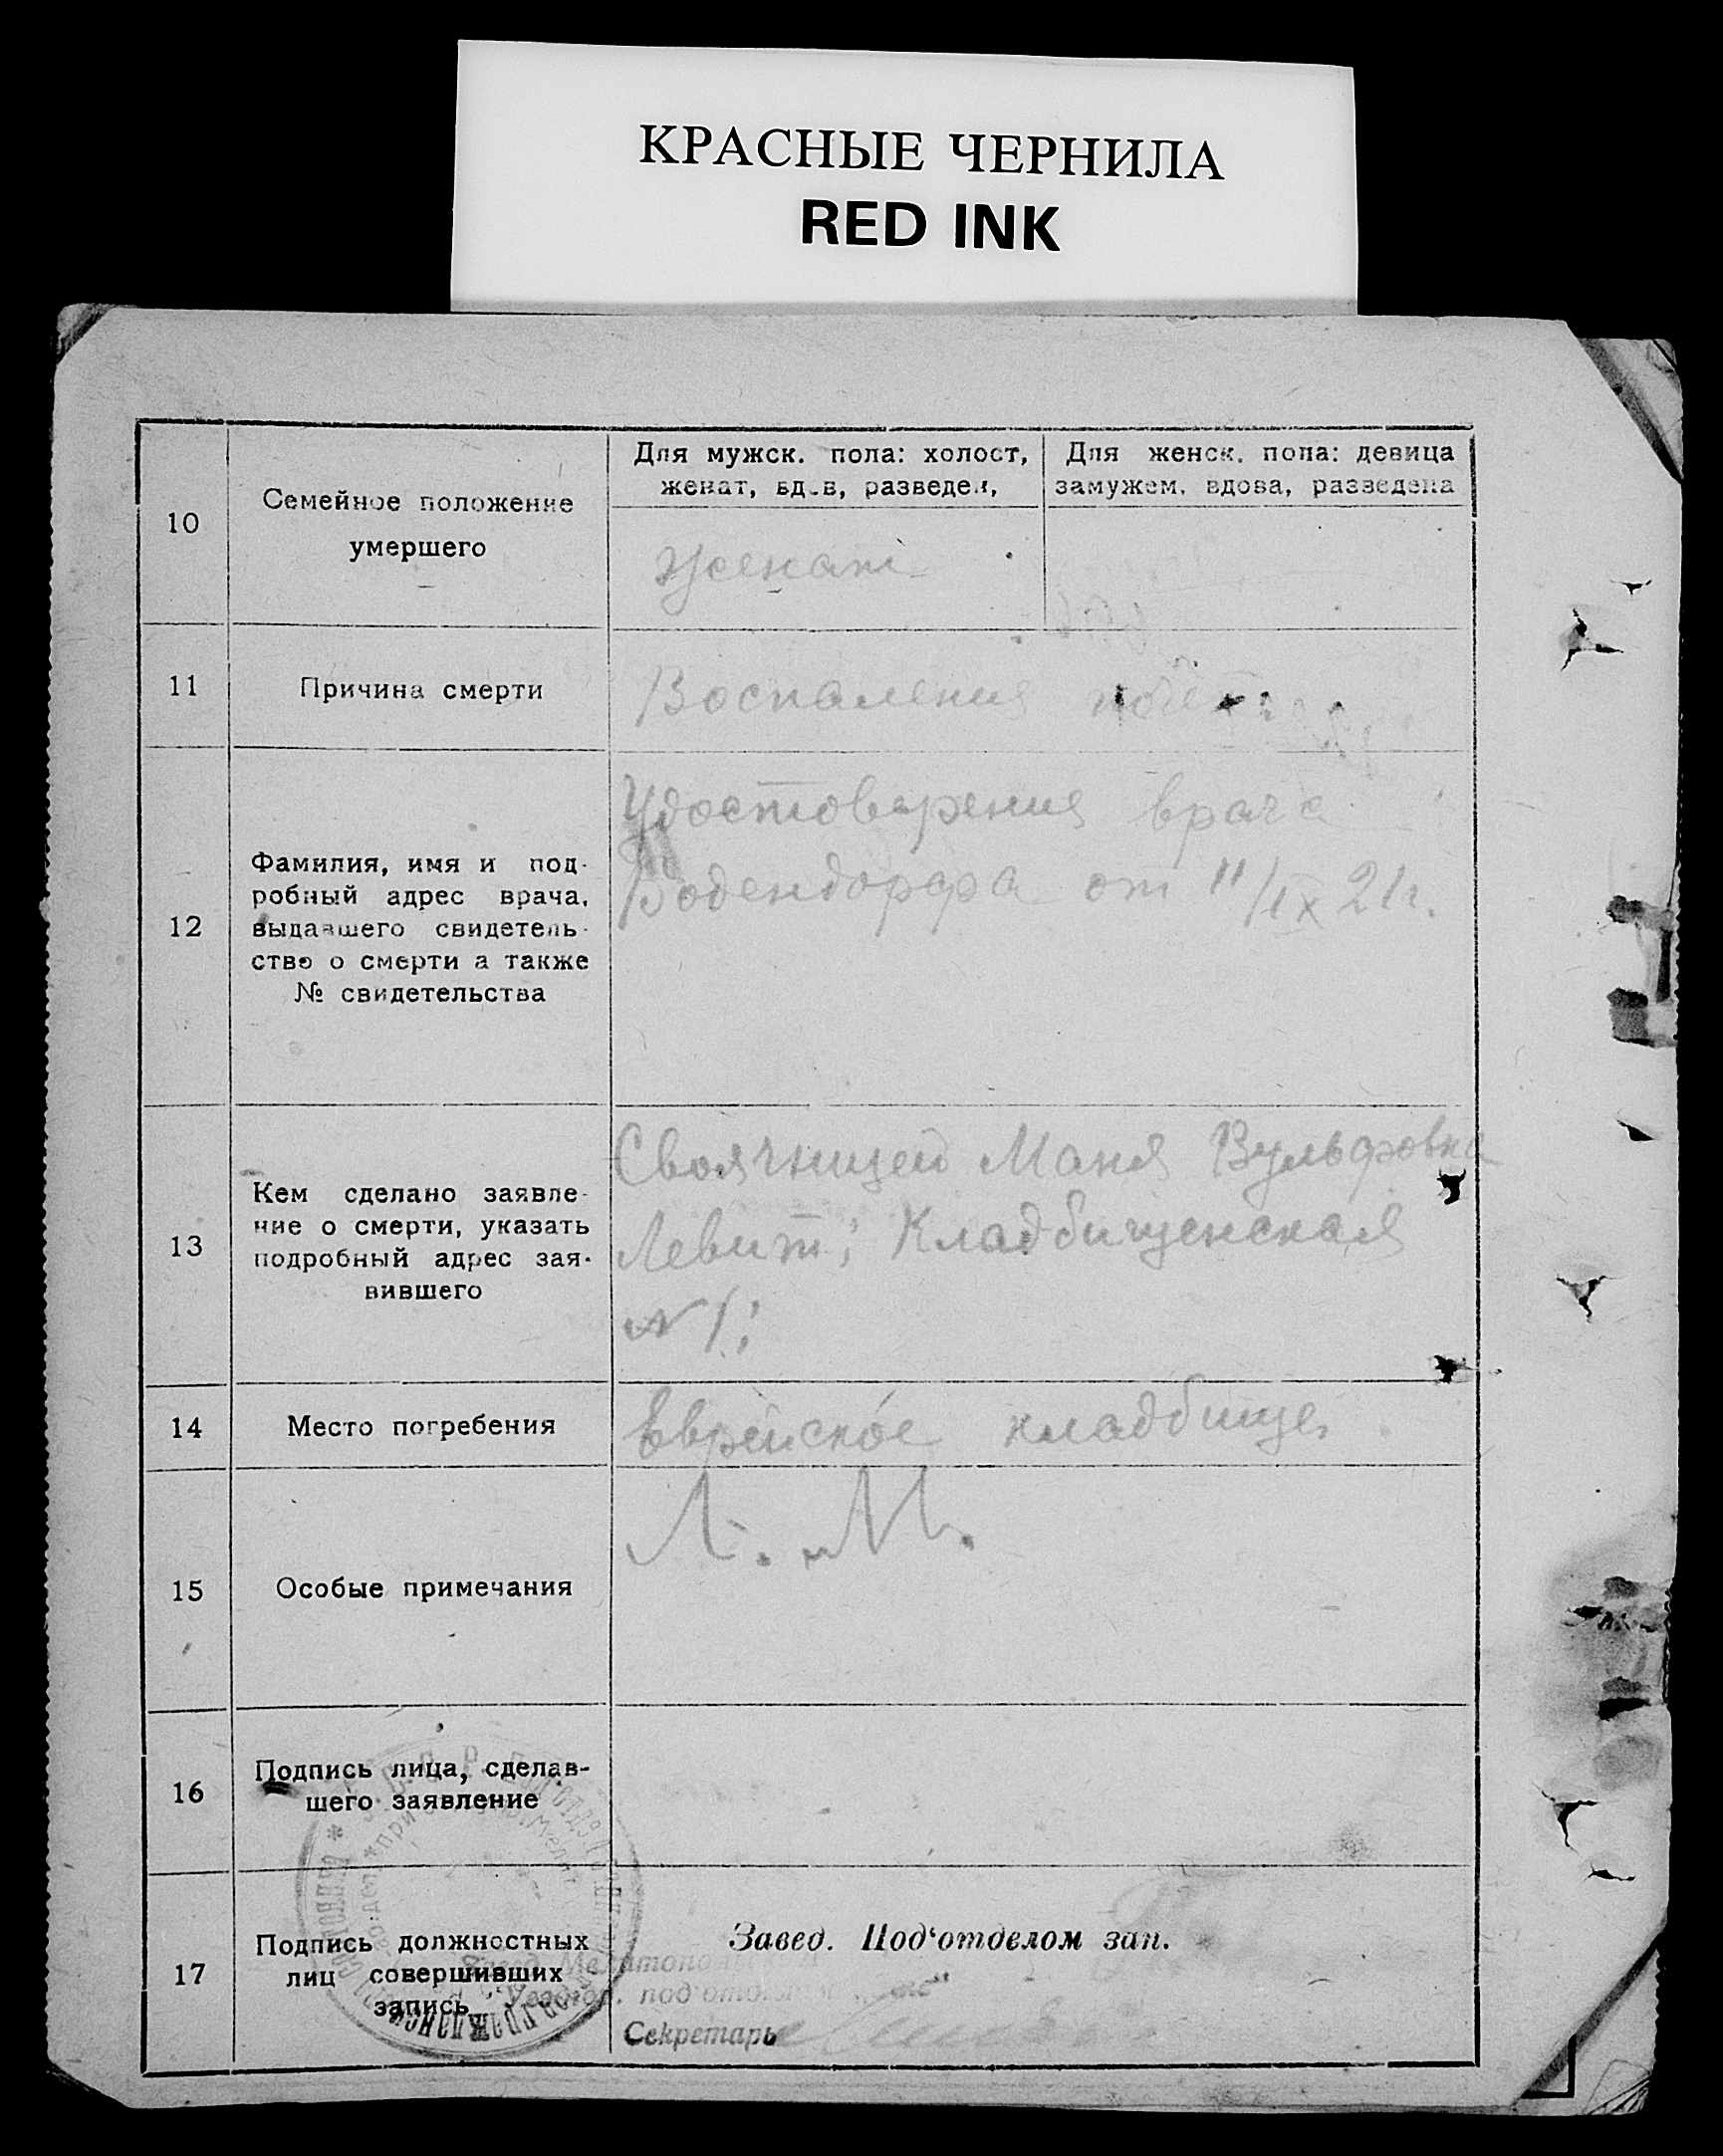 КРАСНЫЕ ЧЕРНИЛА
RED INK
10
Семейное положение
умершего
Для мужск. пола: холост,
женат, вдов, разведен,
Для женск. пола: девица
замужем, вдова, разведена
женат
11
Причина смерти
Воспаления
12
Фамилия, имя и под-
робный адрес врача,
выдавшего свидетель-
ство о смерти а также
№ свидетельства
Удостоверения врача
Бодендорфа от 11/IX 21г.
13
Кем сделано заявле-
ние о смерти, указать
подробный адрес зая-
вившего
Своячницей Маня Вульфовна
Левит; Кладбищенская
N 1;
14
Место погребения
Еврейское кладбище
15
Особые примечания
Л. М.
16
Подпись лица, сделав-
шего заявление
17
Подпись должностных
лиц совершивших
запись
Завед. Под'отделом зап.
Секретарь